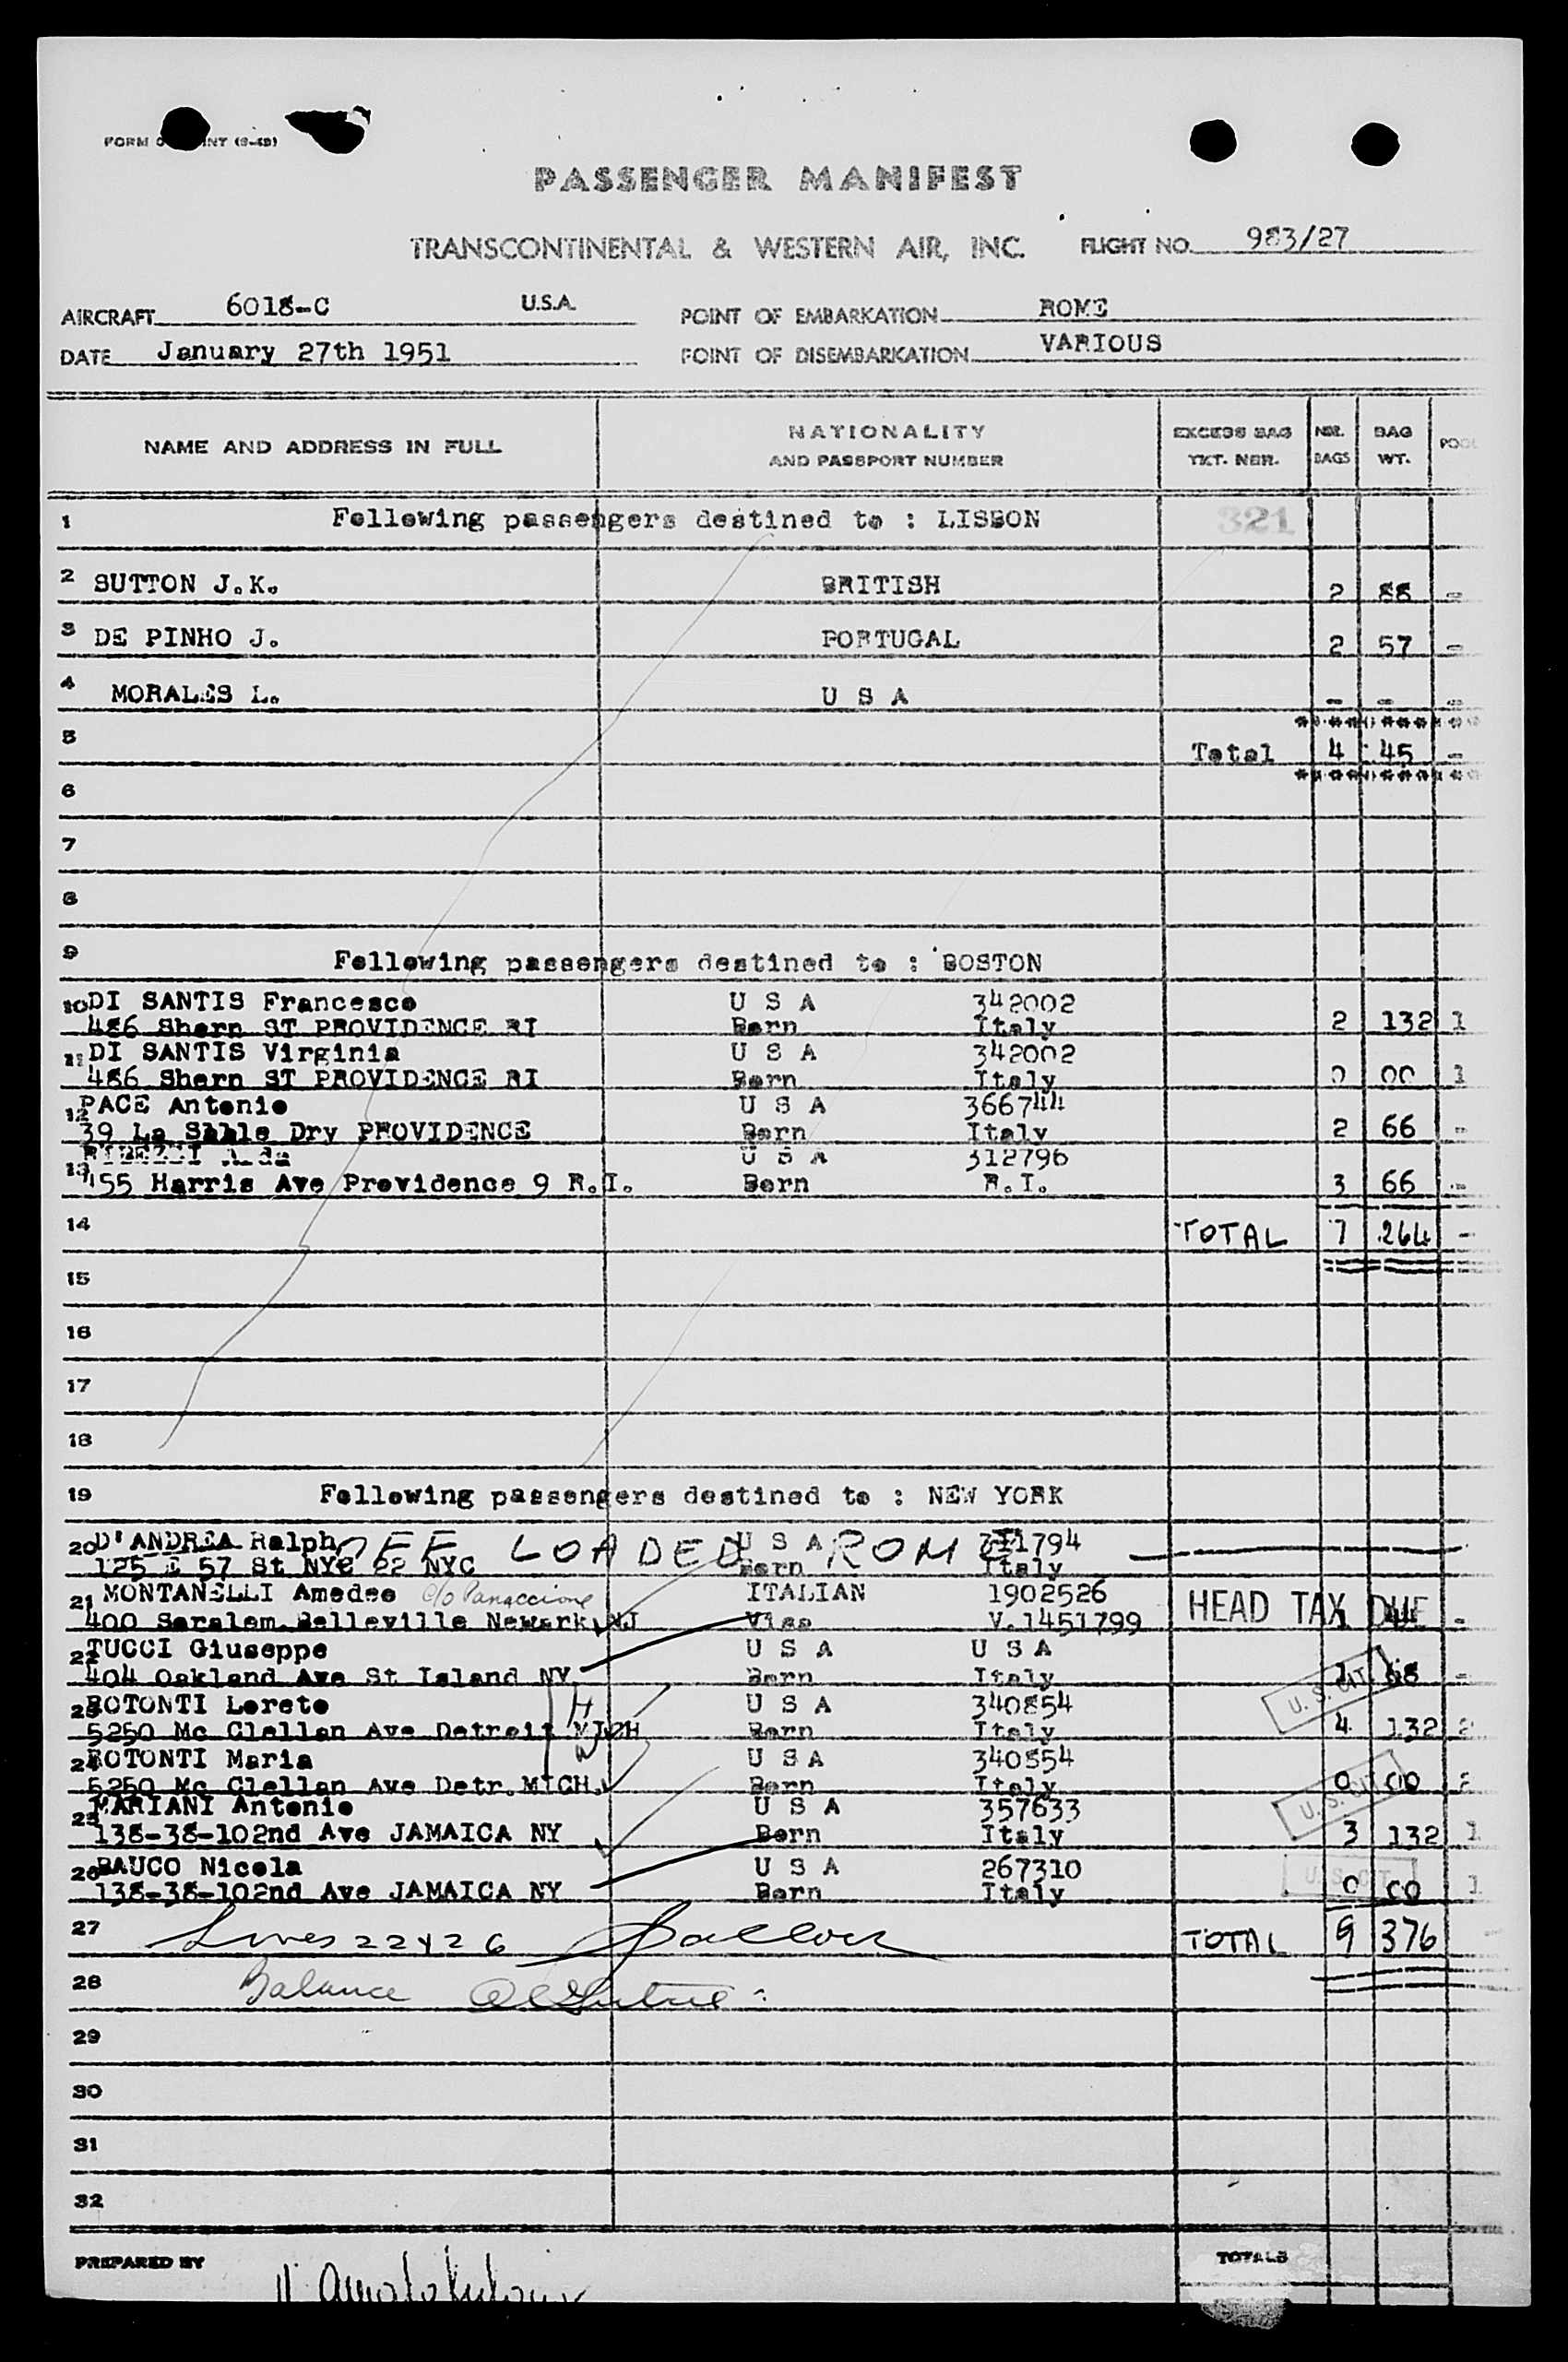 PASSENGER MANIFEST
TRANSCONTINENTAL & WESTERN AIR, INC. FLIGHT NO. 983/27
AIRCRAFT 6018-C U.S.A. POINT OF EMBARKATION ROME
DATE January 27th 1951 POINT OF DISEMBARKATION VARIOUS
NAME AND ADDRESS IN FULL NATIONALITY AND PASSPORT NUMBER EXCESS BAG TKT. NBR. NBR. BAGS BAG WT.
1 Following passengers destined to : LISBON 321
2 SUTTON J.K. BRITISH 2 88 -
3 DE PINHO J. PORTUGAL 2 57 -
4 MORALES L. U S A - - -
5 Total 4 45 -
6
7
8
9 Following passengers destined to : BOSTON
10 DI SANTIS Francesco U S A 342002
486 Shern ST PROVIDENCE RI Born Italy 2 132 1
11 DI SANTIS Virginia U S A 342002
486 Shern ST PROVIDENCE RI Born Italy 0 00 1
12 PACE Antonio U S A 366744
39 La Dry PROVIDENCE Born Italy 2 66 -
13 U S A 312796
155 Harris Ave Providence 9 R.I. Born R.I. 3 66 -
14 TOTAL 7 264 -
15
16
17
18
19 Following passengers destined to : NEW YORK
20 D'ANDREA Ralph OFF LOADED ROM U S A 1794
125 E 57 St NYC 22 NYC Born Italy
21 MONTANELLI Amedeo c/o Panaccione ITALIAN 1902526 HEAD TAX DUE
400 Saralem Belleville Newark NJ Visa V.1451799 1 44 -
22 TUCCI Giuseppe U S A U S A
404 Oakland Ave St Island NY Born Italy U. S. CIT. 1 68 -
23 ROTONTI Loreto H U S A 340854
5250 Mc Clellan Ave Detroit MICH Born Italy 4 132 2
24 ROTONTI Maria W U S A 340854
5250 Mc Clellan Ave Detr. MICH. Born Italy U. S. CIT. 0 00 2
25 MARIANI Antonio U S A 357633
138-38-102nd Ave JAMAICA NY Born Italy 3 132 1
26 BAUCO Nicola U S A 267310 U. S. CIT.
138-38-102nd Ave JAMAICA NY Born Italy 0 00 1
27 Lines 22 & 26 TOTAL 9 376
28 Balance
29
30
31
32
PREPARED BY TOTALS